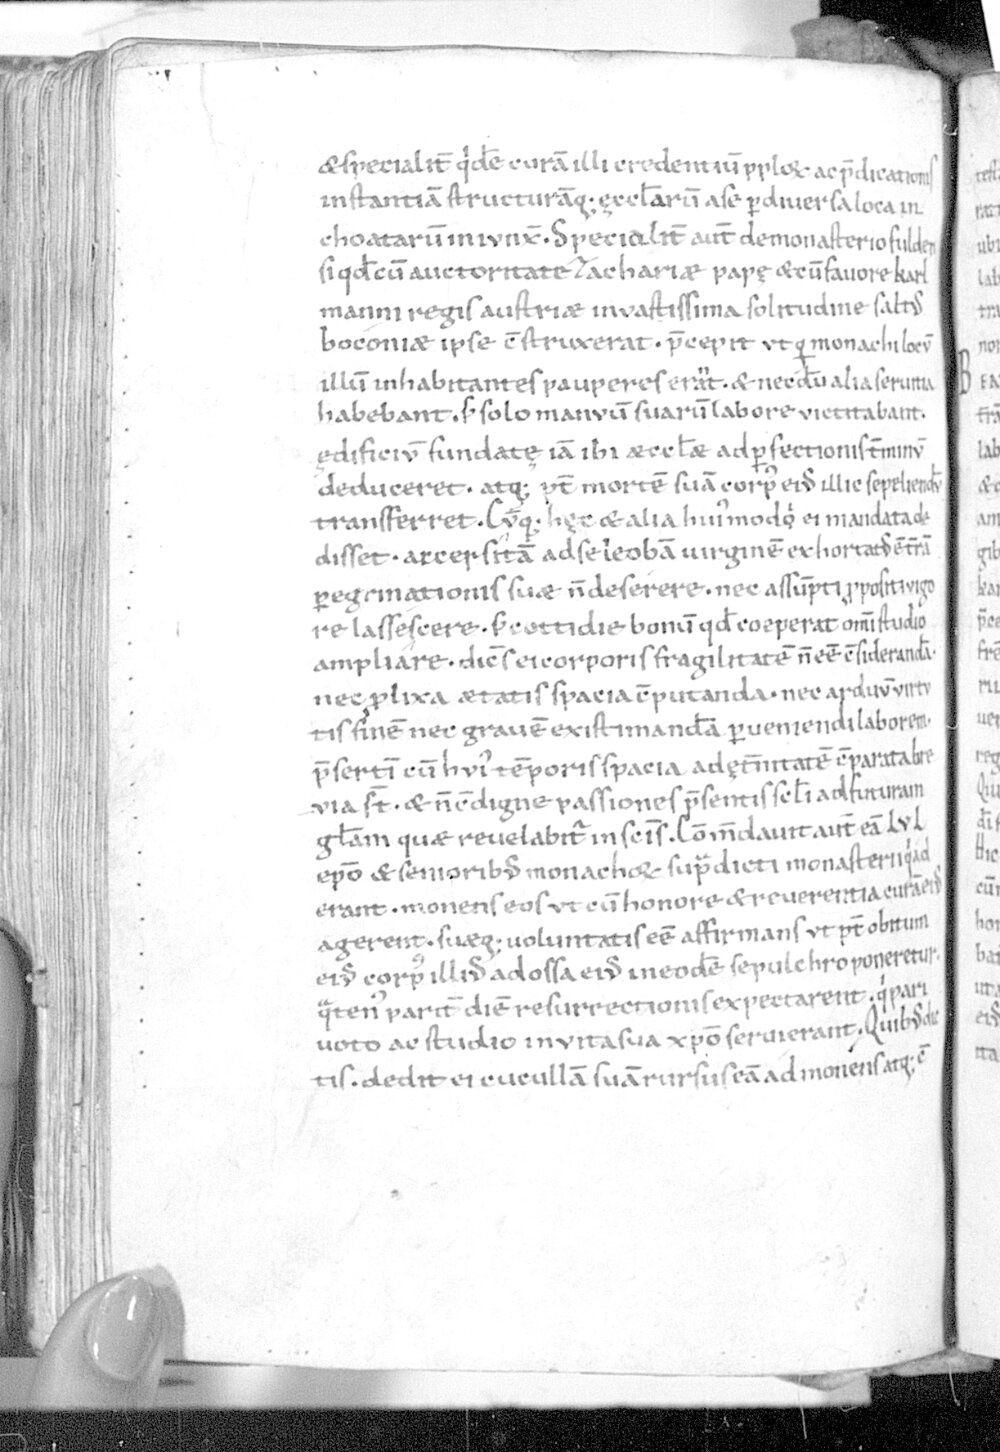 &specialit̄ q'dē curā illi credentiū pploꝝ ac p̄dicationis
instantiā structurāq; ęccl̄arū a se p̱ diversa loca in
choatarū iniunx̄. Specialit̄ aut̄ de monasterio fulden
si qd̄ cū auctoritate Zachariæ papę & cū favore karl
manni regis austriæ in vastissima solitudine saltꝰ
boconiæ ipse c̄struxerat. p̄cepit ut q̱ monachi locū
illū inhabitantes pauperes erāt. & necdū alia seruitia
habebant. s; solo manuū suarū labore victitabant.
ędificiū fundatę iā ibi æccl̄æ ad p̱fectionis t̄minū
deduceret. atq; pꝰt mortē suā corpꝰ eiꝰ illic sepeliendū
transferret. Cūq; hęc & alia huiꝰmodi ei mandata de
disset. arcersitā ad se leobā uirginē exhortatꝰ ē t̄rā
p̱egrinationis suæ n̄ deserere. nec assūpti ꝓpositi vigo
re lassescere. s; cottidie bonū qd̄ coeperat omī studio
ampliare. dicēs ei corporis fragilitatē n̄ eē c̄siderandā.
nec ꝓlixa ætatis spacia c̄putanda. nec arduū virtu
tis finē nec grauē existimandā p̱veniendi laborem.
p̄sertī cū huiꝰ tēporis spacia ad ęt̄nitatē c̄parata bre
via st̄. & n̄ c̄digne passiones p̄sentis scl̄i ad futuram
gl̄am quæ reuelabit̄ in scīs. Cōm̄dauit aut̄ eā LVL
epō & senioribꝰ monachoꝝ sup̱dicti monasterii q' ad
erant. monens eos ut cū honore & reuerentia curā eiꝰ
agerent. suæq; uoluntatis eē affirmans ut pꝰt obitum
eiꝰ corpꝰ illiꝰ ad ossa eiꝰ in eodē sepulchro poneretur.
q̄tenꝰ parit̄ diē resurrectionis expectarent. q' pari
uoto ac studio in vita sua xpō seruierant. Quibꝰ dic
tis. dedit ei cucullā suā rursus eā admonens atq; c̄